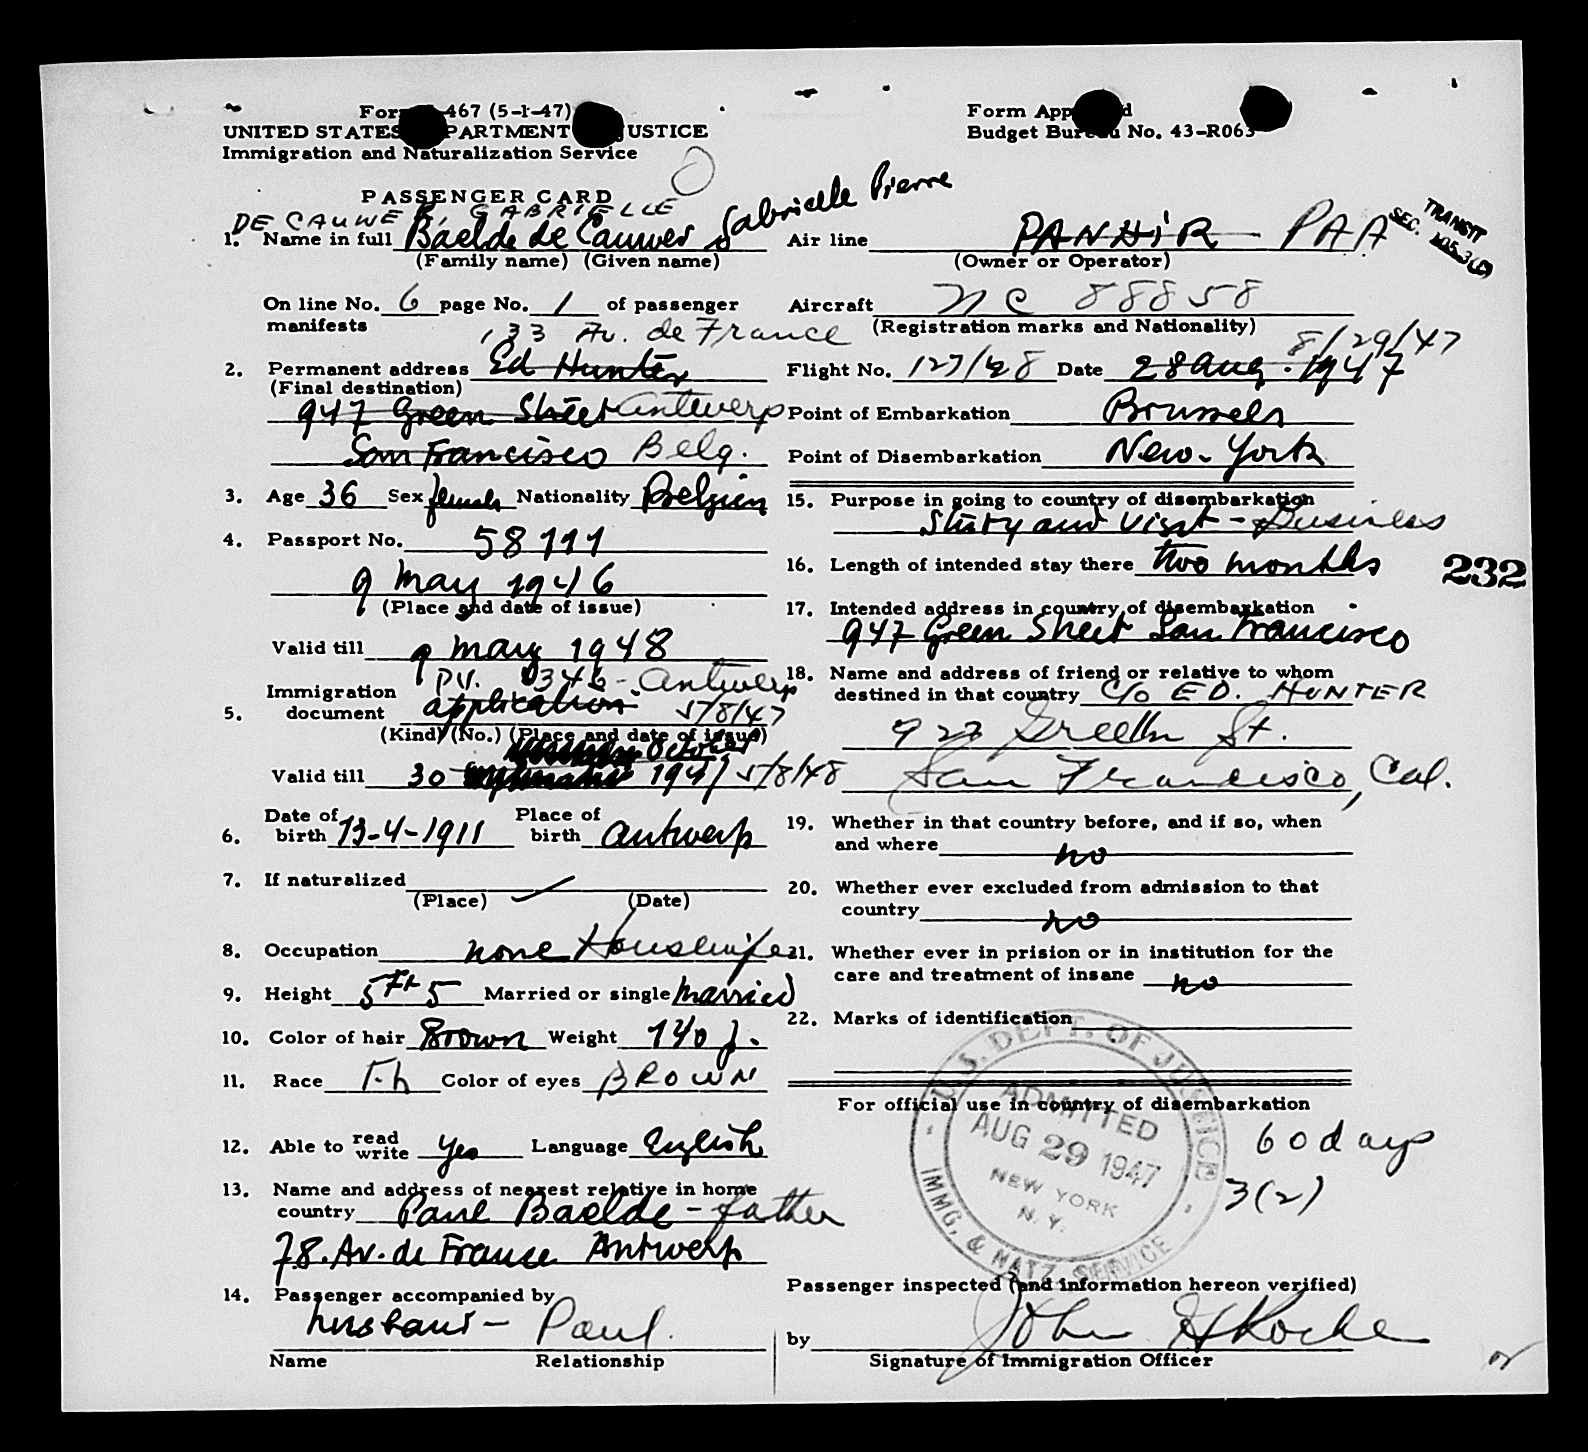 Form 467 (5-1-47)
UNITED STATES DEPARTMENT JUSTICE
Immigration and Naturalization Service
Form Approved
Budget Bureau No. 43-R063
PASSENGER CARD
DE CAUWER, GABRIELLE
1. Name in full Baelde de Cauwer Gabrielle Pierre
(Family name) (Given name)
On line No. 6 page No. 1 of passenger
manifests
133 Av. de France
2. Permanent address Ed Hunter
(Final destination)
947 Green Street Antwerp
San Francisco Belg.
3. Age 36 Sex female Nationality Belgien
4. Passport No. 58111
9 May 1946
(Place and date of issue)
Valid till 9 May 1948
PV. 346 - Antwerp
Immigration
5. document application 5/8/47
(Kind) (No.) (Place and date of issue)
October
Valid till 30 1947 5/8/48
6. Date of birth 13-4-1911 Place of birth Antwerp
7. If naturalized
(Place) (Date)
8. Occupation none Housewife
9. Height 5 Ft 5 Married or single Married
10. Color of hair Brown Weight 140
11. Race Color of eyes BROWN
12. Able to read write yes Language English
13. Name and address of nearest relative in home
country Paul Baelde - father
78. Av. de France Antwerp
14. Passenger accompanied by
husband - Paul.
Name Relationship
Air line PANAIR PAA
(Owner or Operator)
TRANSIT
SEC.
Aircraft NC 88858
(Registration marks and Nationality)
8/29/47
Flight No. 127/28 Date 28 Aug. 1947
Point of Embarkation Brussels
Point of Disembarkation New-York
15. Purpose in going to country of disembarkation
Study and visit - Business
16. Length of intended stay there two months
232
17. Intended address in country of disembarkation
947 Green Street San Francisco
18. Name and address of friend or relative to whom
destined in that country C/O ED. HUNTER
927 Green St.
San Francisco, Cal.
19. Whether in that country before, and if so, when
and where no
20. Whether ever excluded from admission to that
country no
21. Whether ever in prision or in institution for the
care and treatment of insane no
22. Marks of identification
For official use in country of disembarkation
U.S. DEPT. OF JUSTICE
ADMITTED
AUG 29 1947
NEW YORK
N. Y.
IMMG. & NATZ. SERVICE
60 days
3(2)
Passenger inspected (and information hereon verified)
by John H Roche
Signature of Immigration Officer